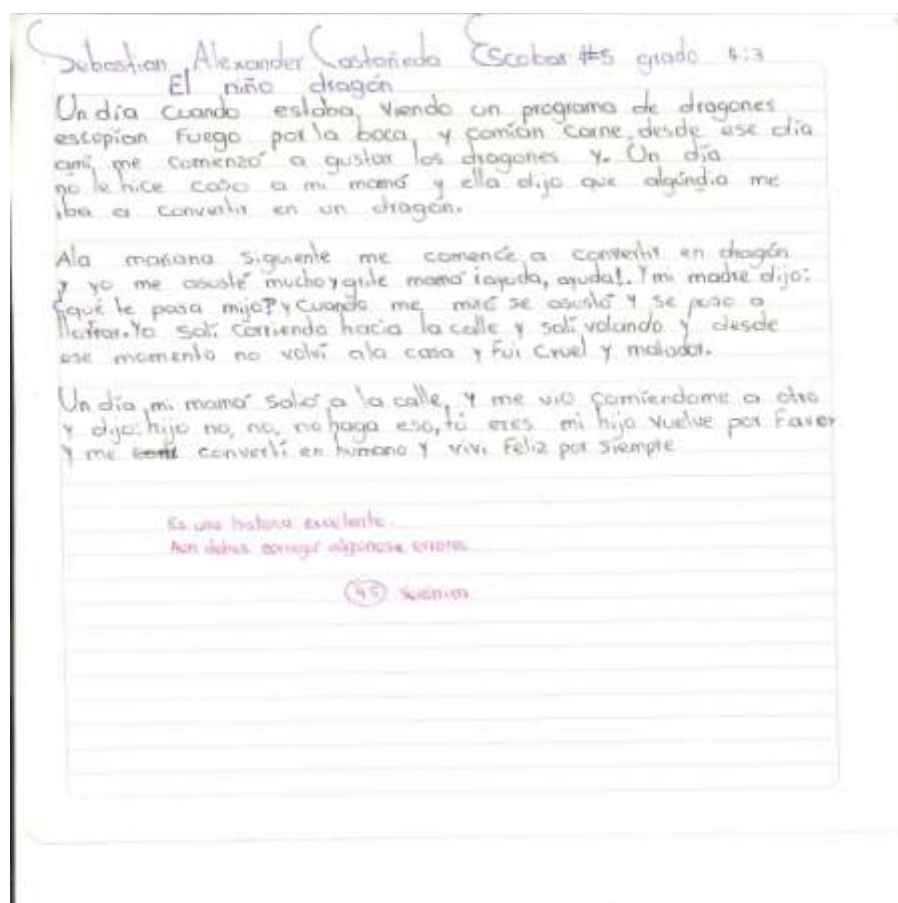 Sebastian Alexander Castañeda Escobar #5 grado 4:3
El niño dragón
Un día cuando estaba, viendo un programa de dragones
escopian fuego por la boca, y comían carne, desde ese día
ami, me comenzó a gustar los dragones y. Un día
no le hice caso a mi mamá y ella dijo que algúndia me
iba a convertir en un dragón.
Ala mañana siguiente me comencé a convertir en dragón
y yo me asusté mucho y grite mamá ¡ayuda, ayuda!. Y mi madre dijo:
¿qué le pasa mijo? y cuando me miró se asustó y se puso a
llorar. Yo salí corriendo hacia la calle y salí volando y desde
ese momento no volví ala casa y fui cruel y matador.
Un día, mi mamá salió a la calle, y me vio comiéndome a otro
y dijo: hijo no, no, no haga eso, tú eres mi hijo vuelve por favor
y me convertí en humano y viví feliz por siempre
Es una historia excelente.
Aun debes corregir errores
45